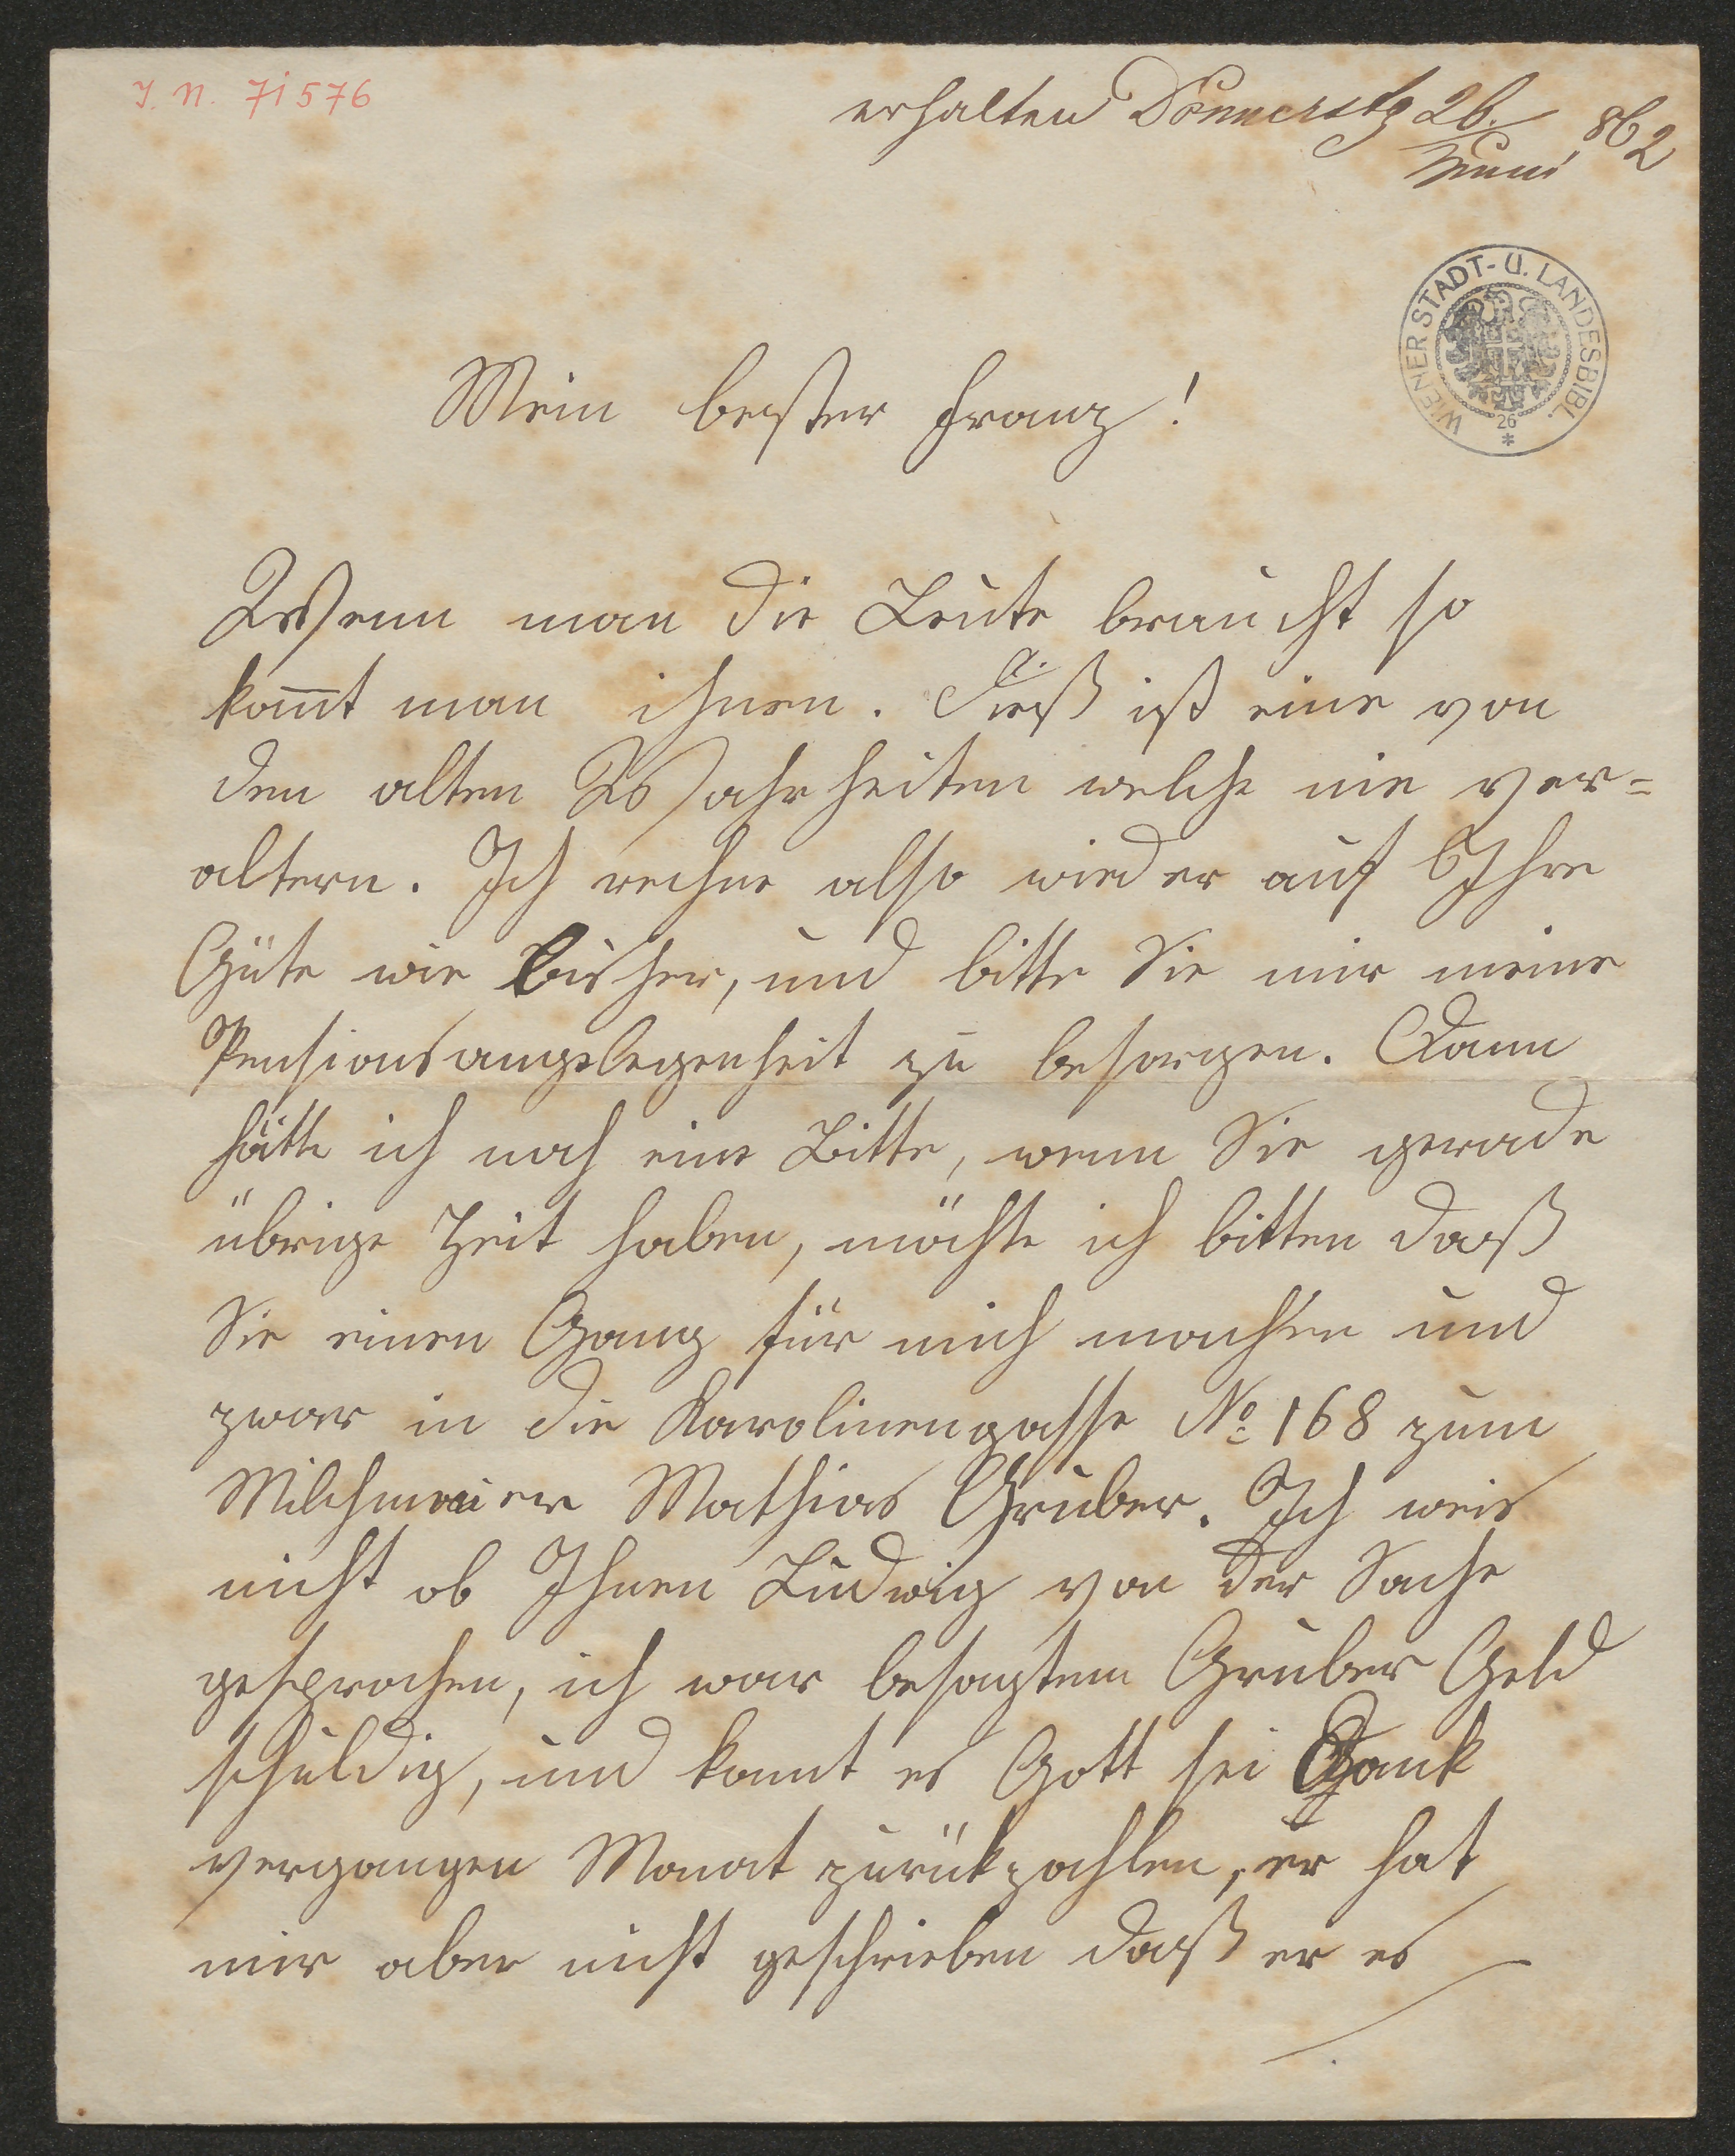 I. N. 71576
erhalten Donnerstg 26./
Juni 862
WIENER STADT- U. LANDESBIBL.
26
Mein bester Franz!
Wenn man die Leute braucht so
kom̄t man ihnen. Dieß ist eine von
den alten Wahrheiten welche nie ver=
altern. Ich rechne also wieder auf Ihre
Güte wie bisher, und bitte Sie mir meine
Pensionsangelegenheit zu besorgen. Dann
hätte ich noch eine Bitte, wenn Sie gerade
übrige Zeit haben, möchte ich bitten daß
Sie einen Gang für mich machen und
zwar in die Karolinengasse No 168 zum
Milchmaier Mathias Gruber. Ich weis
nicht ob Ihnen Ludwig von der Sache
gesprochen, ich war besagtem Gruber Geld
schuldig, und konnt es Gott sei Dank
vergangen Monat zurückzahlen, er hat
mir aber nicht geschrieben daß er es